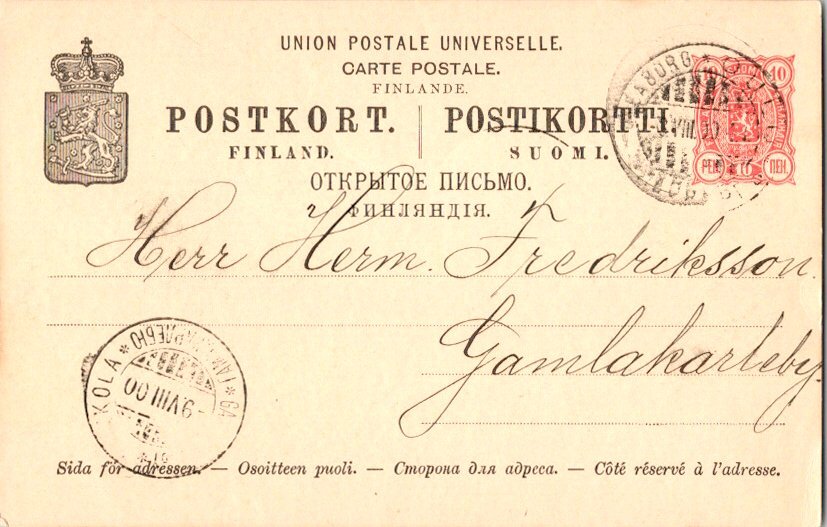 UNION POSTALE UNIVERSELLE.
CARTE POSTALE.
FINLANDE.
POSTKORT. POSTIKORTTI.
FINLAND. SUOMI.
ОТКРЫТОЕ ПИСЬМО.
ФИНЛЯНДІЯ.
10
PEN. 10 ПЕН.
VIII 00
Herr Herm. Fredriksson.
Gamlakarleby.
KOLA * * GA
9 VIII 00
Sida för adressen. — Osoitteen puoli. — Сторона для адреса. — Côté réservé à l'adresse.